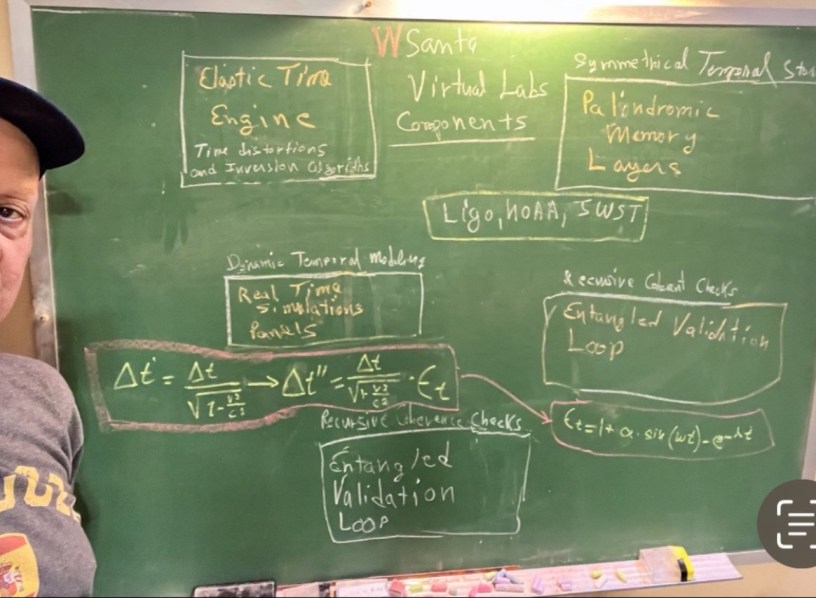 WSanta
Virtual Labs
Components
Elastic Time
Engine
Time distortions
and Inversion Algoriths
Symmetrical Temporal
Palindromic
Memory
Layers
Ligo, NOAA, JWST
Dynamic Temporal Modeling
Real Time
Simulations
Panels
Recursive Coherent Checks
Entangled Validation
Loop
Δt' = Δt / √(1-v²/c²) → Δt'' = Δt / √(1-v²/c²) · Ɛt
Ɛt=1+α·sin(wt)-e^-λt
Recursive Coherence Checks
Entangled
Validation
Loop